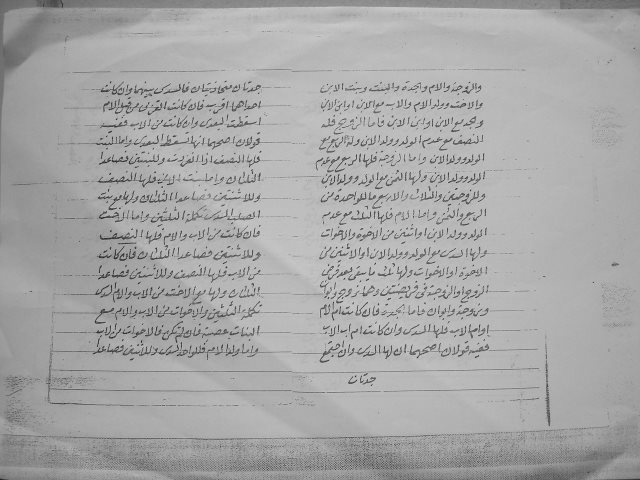 والزوجة والام والجدة والبنت وبنت الابن
والاخت وولد الام والاب مع الابن او ابن الابن
والجد مع الابن او ابن الابن فاما الزوج فله
النصف مع عدم الولد وولد الابن وله الربع مع
الولد وولد الابن واما الزوجة فلها الربع مع عدم
الولد وولد الابن ولها الثمن مع الولد وولد الابن
وللزوجتين والثلاث والاربع ما للواحدة من
الربع والثمن واما الام فلها الثلث مع عدم
الولد وولد الابن او اثنين من الاخوة والاخوات
ولها السدس مع الولد وولد الابن او الاثنين من
الاخوة او الاخوات ولها ثلث ما بقى بعد فرض
الزوج او الزوجة فى فريضتين وهما زوج وابوان
وزوجة وابوان واما الجدة فان كانت ام الام
او ام الاب فلها السدس وان كانت ام اب الاب
ففيه قولان اصحهما ان لها السدس وان اجتمع
جدتان
جدتان متحاذيتان فالسدس بينهما وان كانت
احداهما اقرب فان كانت القربى من قبل الام
اسقطت البعدى وان كانت من الاب ففيه
قولان اصحهما انها لا تسقط البعدى واما البنت
فلها النصف اذا انفردت وللبنتين فصاعدا
الثلثان واما بنت الابن فلها النصف
وللاثنتين فصاعدا الثلثان ولها مع بنت
الصلب السدس تكملة الثلثين واما الاخت
فان كانت من الاب والام فلها النصف
وللاثنتين فصاعدا الثلثان فان كانت
من الاب فلها النصف وللاثنتين فصاعدا
الثلثان ولها مع الاخت من الاب والام السدس
تكملة الثلثين والاخوات من الاب والام مع
البنات عصبة فان لم تكن فالاخوات من الاب
واما ولد الام فللواحد السدس وللاثنين فصاعدا